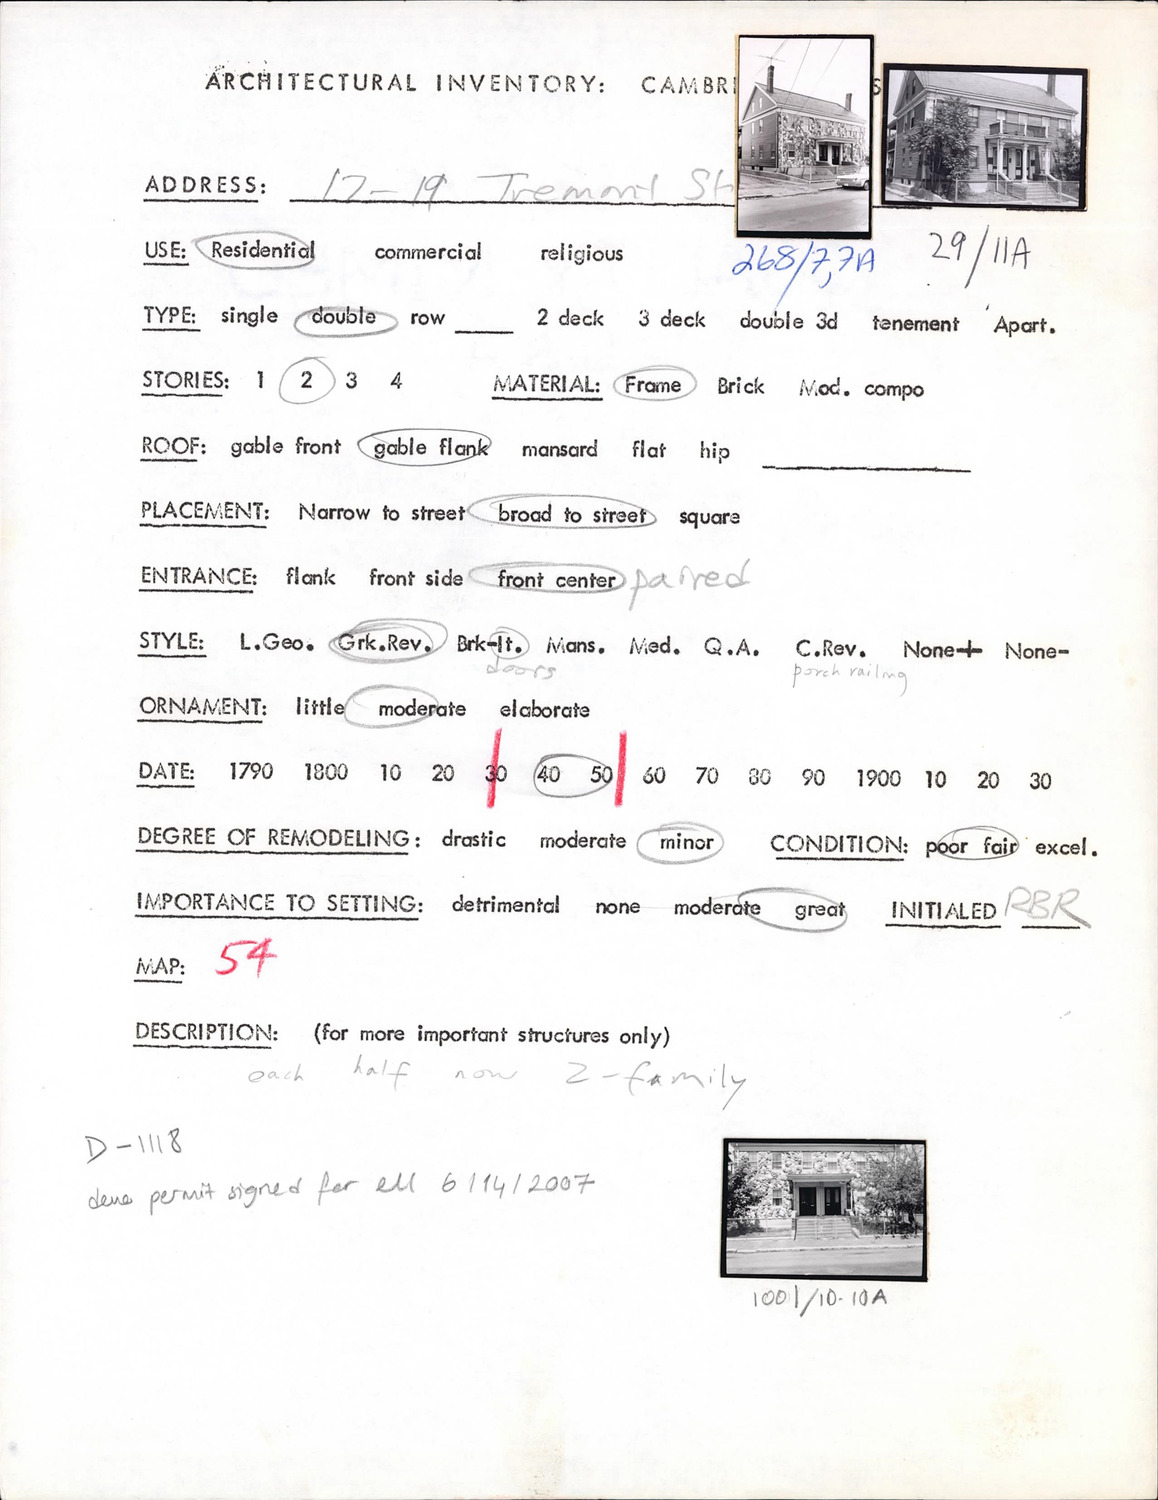 ARCHITECTURAL INVENTORY: CAMBRI S
ADDRESS: 17-19 Tremont St
268/7,7A 29/11A
USE: Residential commercial religious
TYPE: single double row ____ 2 deck 3 deck double 3d tenement Apart.
STORIES: 1 2 3 4 MATERIAL: Frame Brick Mod. compo
ROOF: gable front gable flank mansard flat hip ____
PLACEMENT: Narrow to street broad to street square
ENTRANCE: flank front side front center paired
STYLE: L.Geo. Grk.Rev. Brk-It. Mans. Med. Q.A. C.Rev. None+ None-
doors porch railing
ORNAMENT: little moderate elaborate
DATE: 1790 1800 10 20 30 40 50 60 70 80 90 1900 10 20 30
DEGREE OF REMODELING: drastic moderate minor CONDITION: poor fair excel.
IMPORTANCE TO SETTING: detrimental none moderate great INITIALED RBR
MAP: 54
DESCRIPTION: (for more important structures only)
each half now 2-family
D-1118
permit signed for ell 6/14/2007
1001/10-10A